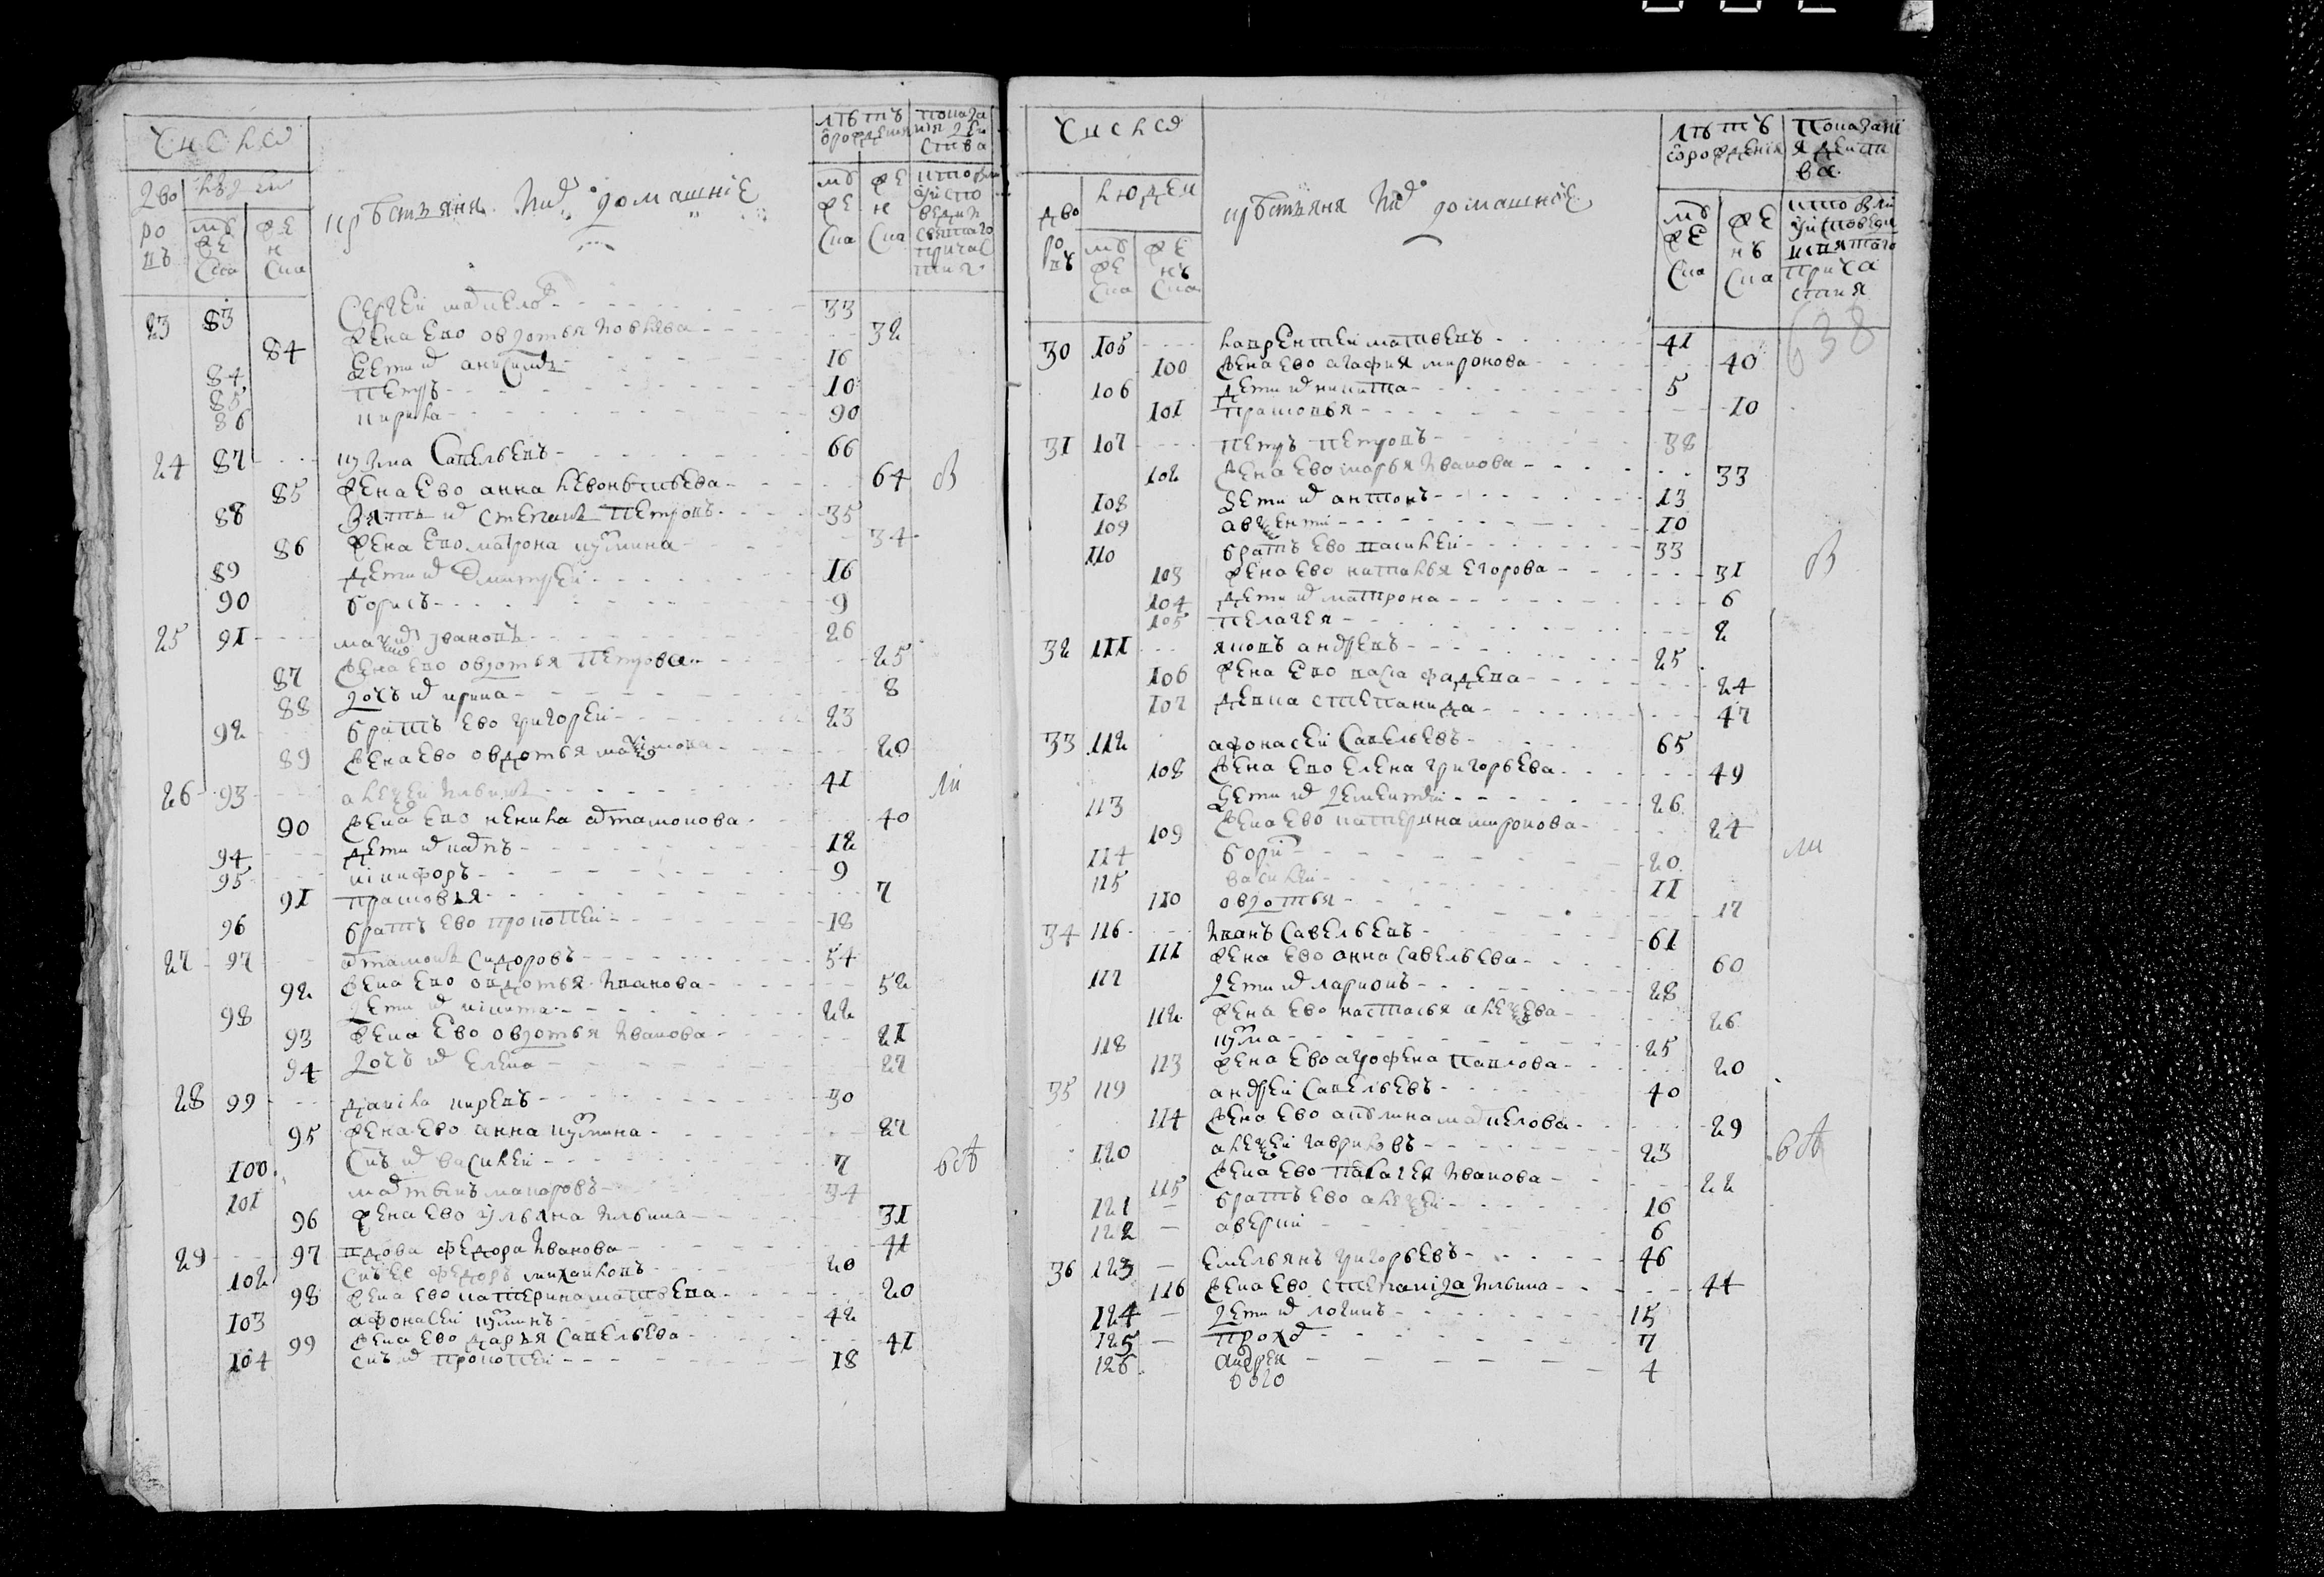 Число
дво ро въ
людей
муже ска
жен ска
крестьяня их домашние
летъ от рождения
муже ска
жен ска
показания действа
кто былъ у исповеди и святаго причастия
23 83 Сергей Маѯимов 33
84 жена ево Овдотья Иовлева 32
84 дети их Анисимъ 16
85 Петръ 10
86 Кирила 90
24 87 Кузма Савельевъ 66
85 жена ево Анна Левонтьева 64 в
88 зять их Степанъ Петровъ 35
86 жена ево Матрона Кузмина 34
89 дети их Дмитрей 16
90 Борисъ 9
25 91 Маѯим Ивановъ 26
87 жена ево Овдотья Петрова 25
88 дочь их Ирина 8
92 братъ ево Григорей 23
89 жена ево Овдотья Маѯимова 20
26 93 Алеѯей Ильинъ 41 ли
90 жена ево Ненила Артамонова 40
94 дети их 12
95 Никифоръ 9
91 Прасковья 7
96 братъ ево Прокопей 18
27 97 Артамонъ Сидоровъ 54
92 жена ево Овдотья Иванова 52
98 дети их Никита 22
93 жена ево Овдотья Иванова 21
94 дочь их Елена 22
28 99 Данила Киревъ 30
95 жена ево Анна Кузмина 27
100 сынъ их Василей 7 бы
101 Мартынъ Макаровъ 34
96 жена ево Ульяна Ильина 31
29 97 вдова Федора Иванова 41
102 сынъ ее Федоръ Михайловъ 20
98 жена ево Катерина Матвева 20
103 Афонасей Кузминъ 42
99 жена ево Дарья Савельева 41
104 сынъ их Прокопей 18
Число
дво ро въ
людей
муже ска
жен ска
крестьяня их домашние
летъ от рождения
муже ска
женъ ска
показания действа
кто былъ у исповеди и святаго причастия
638
30 105 Лаврентей Матвевъ 41
100 жена ево Агафия Миронова 40
106 дети их Никита 5
101 Прасковья 10
31 107 Петръ Петровъ 38
102 жена ево Марья Иванова 33
108 дети их Антонъ 13
109 Авѯенти 10
110 братъ ево Василей 33 в
103 жена ево Наталья Егорова 31
104 дети их Матрона 6
105 Пелагея 2
32 111 Яковъ Андревъ 25
106 жена ево Васа Фадева 24
107 девка Степанида 47
33 112 Афонасей Савельевъ 65
108 жена ево Елена Григорьева 49
113 дети их Дементей 26
109 жена ево Катерина Миронова 24
114 Борис 20 ли
115 Василей 11
110 Овдотья 17
34 116 Иванъ Савельевъ 61
111 жена ево Анна Савельева 60
117 дети их Ларионъ 28
112 жена ево Настасья Алеѯева 26
118 Кузма 25
113 жена ево Агрофена Павлова 20
35 119 Андрей Савельевъ 40
114 жена ево Акулина Маѯимова 29
120 Алеѯей Гавриловъ 23 бы
115 жена ево Палагея Иванова 22
121 братъ ево Алеѯей 16
122 Аверкий 6
36 123 Емельянъ Григорьевъ 46
116 жена ево Степанида Ильина 44
124 дети их Логинъ 15
125 Прохор 7
126 Андрей 4